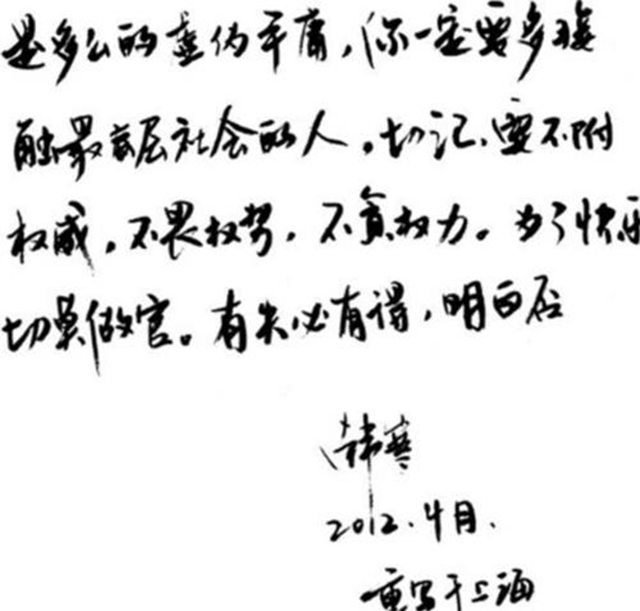 是多么的虚伪平庸，你一定要多接
触最底层社会的人。切记，要不附
权威，不畏权势，不贪权力。为了快乐
切莫做官。有失必有得，明白否
韩寒
2012.4月.
重写于上海